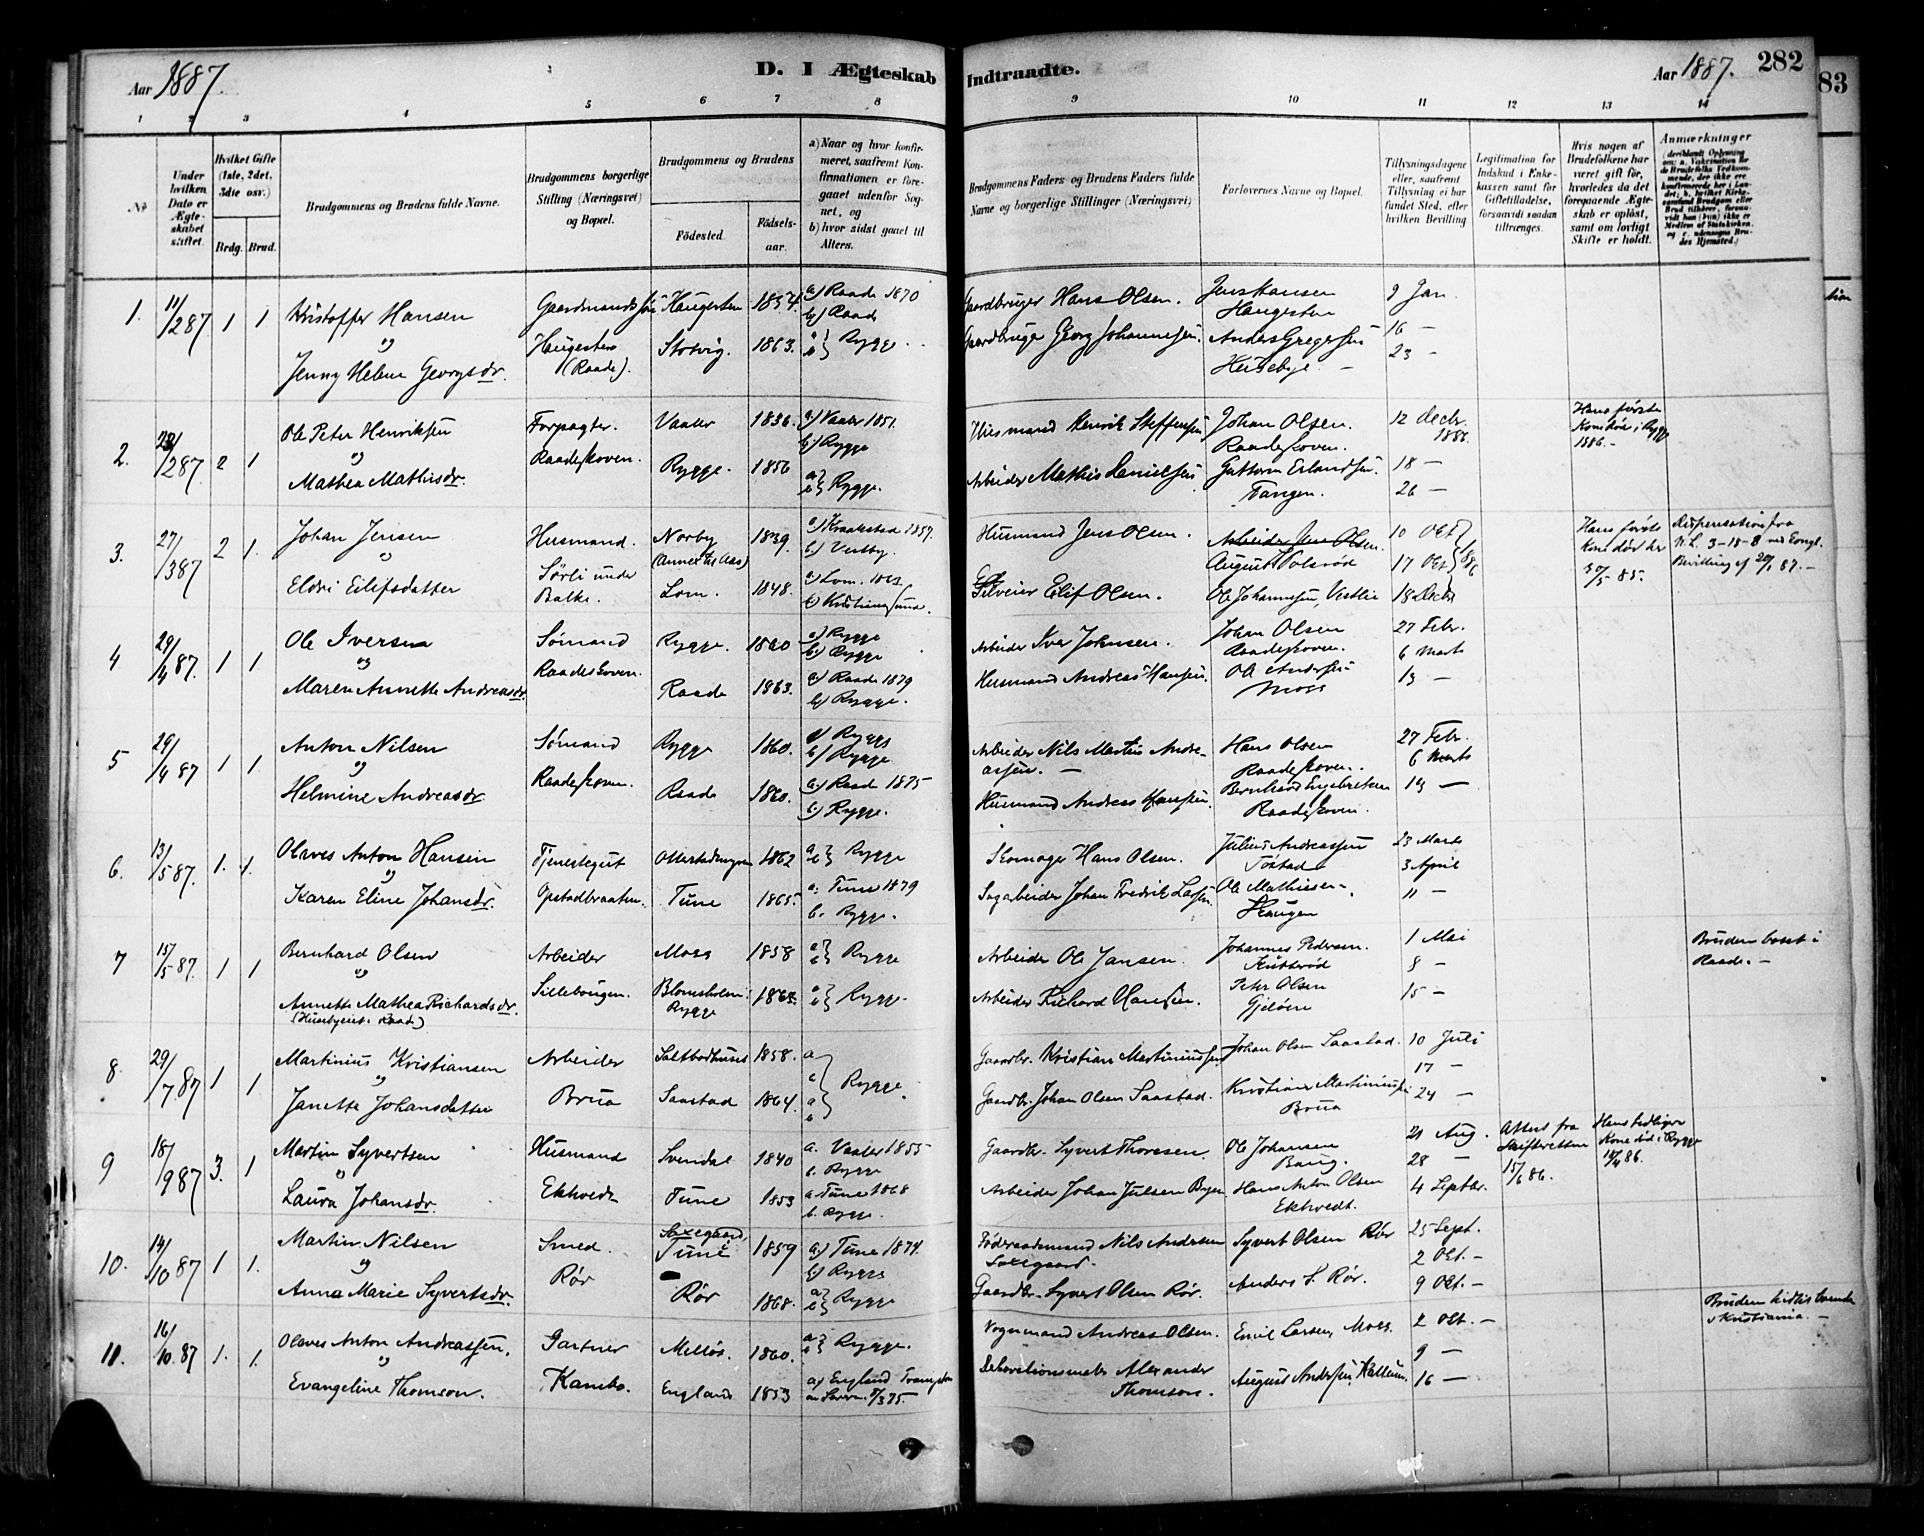 Aar 1887.
D. I Ægteskab Indtraadte.
Aar 1887. 282
83
1 2 3 4 5 6 7 8 9 10 11 12 13 14
No.
Under hvilken Dato er Ægteskabet stiftet.
Hvilket Gifte (1ste, 2det, 3die osv.)
Brdg. Brud.
Brudgommens og Brudens fulde Navne.
Brudgommens borgerlige Stilling (Næringsvei) og Bopæl.
Brudgommens og Brudens
Fødested.
Fødselsaar.
a) Naar og hvor konfirmeret, saafremt Konfirmationen er foregaaet udenfor Sognet, og
b) hvor sidst gaaet til Alters.
Brudgommens Faders og Brudens Faders fulde Navne og borgerlige Stillinger (Næringsvei)
Forlovernes Navne og Bopæl.
Tillysningsdagene eller, saafremt Tillysning ei har fundet Sted, efter hvilken Bevilling
Legitimation for Indskud i Enkekassen samt for Giftetilladelse, forsaavidt saadan tiltrænges.
Hvis nogen af Brudefolkene har været gift før, hvorledes da det foregaaende Ægteskab er opløst, samt om lovligt Skifte er holdt.
Anmærkninger
1. 11/2 87. 1 1 Kristoffer Hansen Gaardmandssøn Haugesten 1857. a) Raade 1870 Gaardbruger Hans Olsen. Jens Hansen 9 Jan.
og b) Raade Haugesten
Haugesten Stotvig. 1863. a b } Rygge Gaardbruger Georg Johannesen. Anders Gregersen 16 -
Jenny Helene Georgsdr. (Raade). Huseby. - 23 -
2. 23/2 87. 2 1 Ole Peter Henriksen Forpagter. Vaaler 1836. a) Vaaler 1851. Husmand Henrik Steffensen Johan Olsen. 12 Decbr. 1886. Hans første
og Raadeskoven. b) Rygge Raadeskoven. Kone døe i Rygge
Mathea Mathisdr. Rygge. 1856 a b } Rygge. Arbeider Mathis Danielsen Guttorm Erlandsen. 18 - 1886. -
Tangen. 26 -
3. 27/3 87 2 1. Johan Jensen Husmand. Norby 1839. a) Kraakstad 1857. Husmand Jens Olsen. Arbeider Jens Olsen. 10 Oct Hans første Dispensation fra
og (Annex til Aas) b) Vestby. August Volsrød 17 Oct 1886 Kone død her N.L. 3-18-8 ved Kongl.
Sørli under 30/5 85. Bevilling af 20/1 87. -
Eldri Eilifsdatter Balke. Lom. 1848. a) Lom. 1863 Eilif Olsen. Ole Johannesen, Vestlie 18 Decbr
b) Kristiansund.
4 29/4 87. 1 1 Ole Iversen Sømand Rygge. 1860 a) Rygge Arbeider Iver Johnsen. Johan Olsen 27 Febr.
og Raadeskoven. b) Rygge Raadeskoven. 6 Marts
Maren Annette Andreasdr. Raade 1863. a) Raade 1879 Husmand Andreas Hansen. Ole Andersen 13 -
b) Rygge. Moss
5 29/4 87 1 1. Anton Nilsen Sømand Rygge 1860. a) Rygge Arbeider Nils Martin Andreassen. - Hans Olsen 27 Febr.
og b) Rygge Raadeskoven. 6 Marts
Helmine Andreasdr Raadeskoven. Raade 1860. a) Raade 1875 Husmand Andreas Hansen. Bernhard Engebretsen 13 -
b) Rygge. Raadeskoven.
6. 13/5 87. 1. 1. Olaves Anton Hansen Tjenestegut 1862 a b } Rygge Skomager Hans Olsen. Julius Andreassen 23 Marts
og Tostad 3 April
Karen Eline Johansdr. Opstadbraaten. Tune 1865. a. Tune 1879 Sagarbeider Johan Fredrik Larsen. Ole Mathiesen 11 -
b. Rygge. Haugen
7 15/5 87. 1 1 Bernhard Olsen Arbeider Moss 1858 a b } Rygge Arbeider Ole Jansen. Johannes Pedersen. 1 Mai Bruden bosat i
og Kubberød 8 - Raade. -
Annette Mathea Richardsdr. Sillebougen. Blomsholm Rygge 1863. a b } Rygge. Arbeider Richard Hansen. Peter Olsen 15 -
Gjeløen
8. 29/7 87 1 1. Martinius Kristiansen Arbeider Saltbodhuset 1858. a Gaardbr. Kristian Martiniussen Johan Olsen Saastad. 10 Juli
og b } Rygge. 17 -
Janette Johansdatter Brua Saastad 1864. a b Gaardbr. Johan Olsen Saastad. Kristian Martiniussen 24 -
Brua
9 18/9 87 3. 1 Martin Syvertsen Husmand Svendal 1840 a. Vaaler 1855 Gaardbr. Syvert Thoresen. Ole Johansen 21 Aug. Attest fra Hans tidligere
og b. Rygge Baug. 28 - Skifteretten Kone død i Rygge
Laura Johansdr. Ekhvedt Tune 1853 a. Tune 1868 Arbeider Johan Julsen Hans Anton Olsen 4 Septbr. 15/6 86. 18/4 86.
b. Rygge. Ekhvedt.
10. 14/10 87 1 1. Martin Nilsen Smed. Saxegaard, Tune 1859 a) Tune 1874. Føderaadsmand Nils Andersen Syvert Olsen Rør 25 Sept.
og b) Rygge Saxegaard. 2 Oct. -
Anna Marie Syvertsdr. Rør Rør 1868. a b } Rygge Gaardbr. Syvert Olsen Rør. Anders S. Rør. 9 Oct. -
11. 16/10 87 1. 1. Olaves Anton Andreassen. Gartner Melløs. 1860. a b } Rygge. Vognmand Andreas Olsen. Emil Larsen, Moss. 2 Oct. - Bruden
og 9 - i Kristiania. -
Evangeline Thomson. Kambo. England 1853 a) England Alexander Thomson. August Andersen, Kallum. 16 -